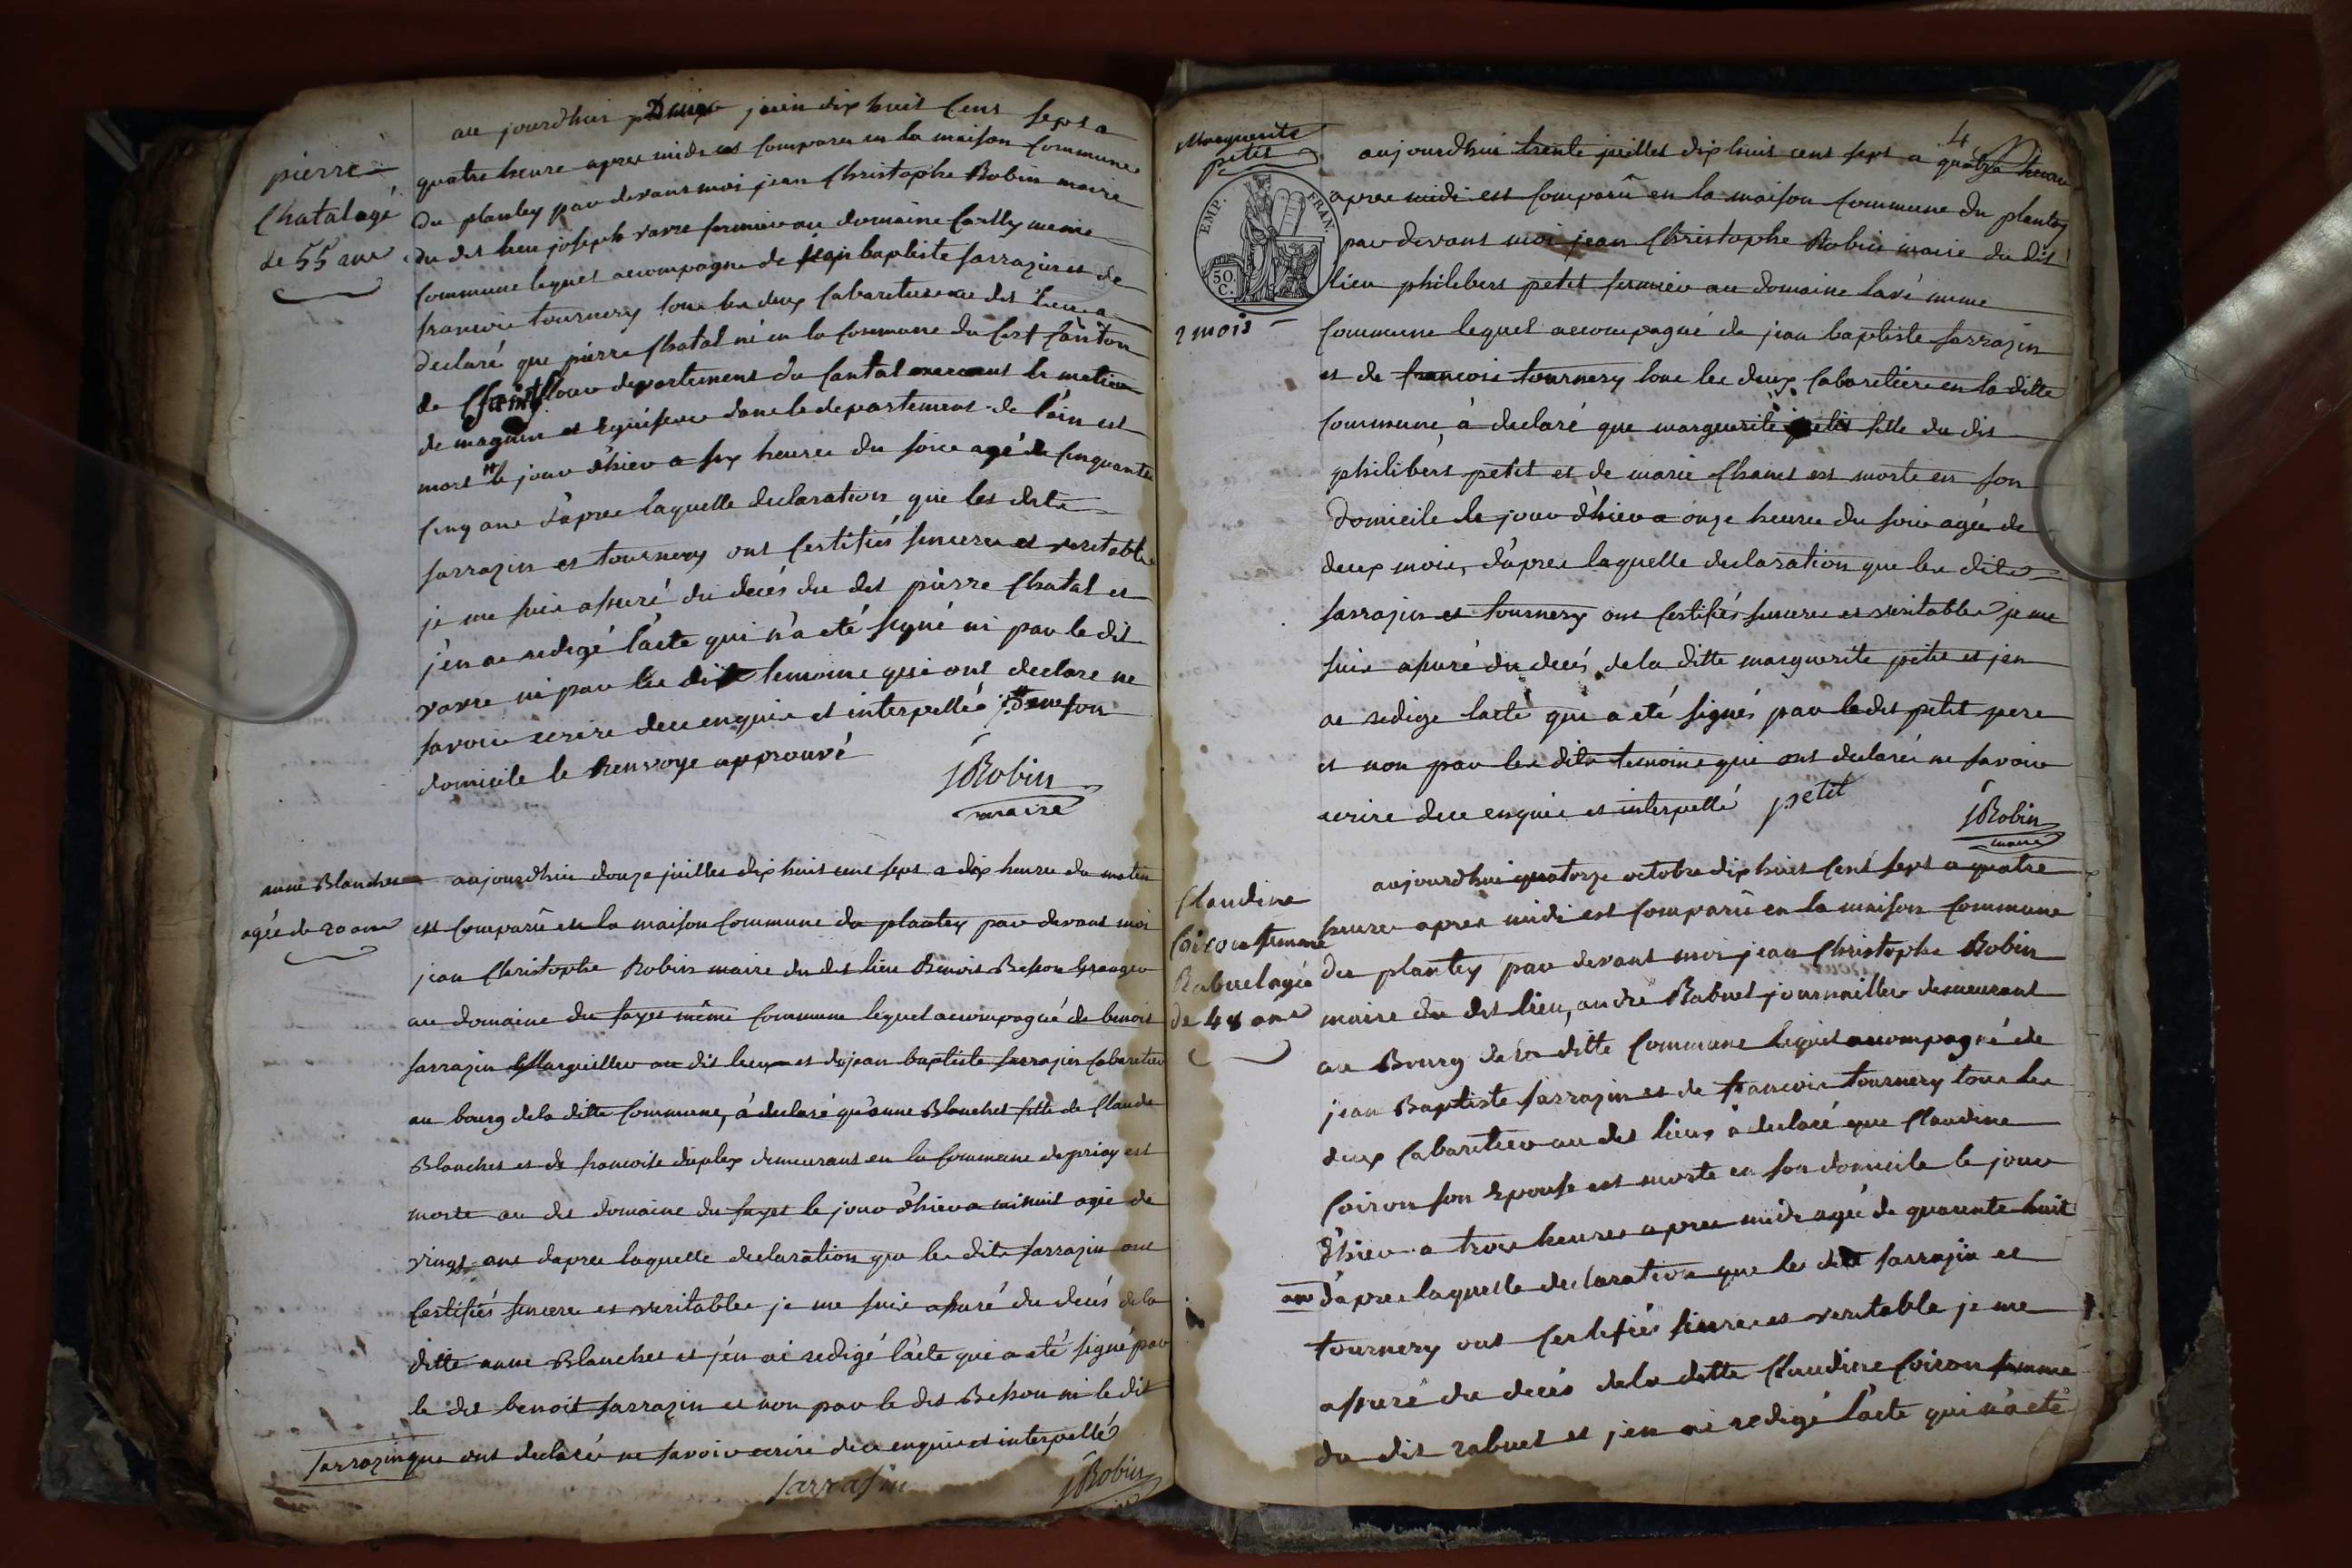 pierre
Chatal agé
de 55 ans
au jourdhui juin dix huit Cens sept a
quatre heure apres midi est Comparu en la maison Commune
du plantey par devant moi jean Christophe Robin maire
du dit lieu joseph varre fermier au domaine meme
Commune lequel accompagné de jean baptiste sarrazin et de
francois tournery tous les deux Cabaretiers au dit lieu a
declaré que pierre Chatal né en la Commune du Canton
de departement du Cantal le metier
de magnin et dans le departement de l'ain est
mort le jour d'hier a six heures du soir agé de Cinquante
Cinq ans d'apres laquelle declaration que les dits
sarrazin et tournery ont Certifiés sincere et veritable
je me suis assuré du decés du dit pierre Chatal et
j'en ai redigé l'acte qui n'a eté signé ni par le dit
varre ni par les dits temoins qui ont declare ne
savoir ecrire de ce enquis et interpellés dans son
domicile le Renvoye approuvé
JRobin
maire
anne Blanchet
agée de 20 ans
aujourdhui douze juillet dix huit cens sept a dix heures du matin
est Comparû en la maison Commune du plantey par devant moi
jean Christophe Robin maire du dit lieu Benoit Besson Granger
au domaine du fayet même Commune lequel accompagné de benoit
sarrazin Marguillier au dit lieu et de jean baptiste sarrazin Cabaretier
au bourg de la ditte Commune, à declaré qu'anne Blanchet fille de Claude
Blanchet et de francoise duplex demeurant en la Commune de priay est
morte au dit domaine du fayet le jour d'hier a minuit agée de
vingt ans d'apres laquelle declaration que les dits sarrazin ont
Certifiés sincere et veritable je me suis assuré du decés de la
ditte anne Blanchet et j'en ai redigé l'acte qui a eté signé par
le dit benoit sarrazin et non par le dit Besson ni le dit
sarrazin qui ont declarés ne savoir ecrire de ce enquis et interpellés
sarrasin
JRobin
4
Marguerite
petit
EMP. FRAN.
50 C.
2 mois
aujourdhui trente juillet dix huit cens sept a quatre heure
apres midi est Comparû en la maison Commune du plantey
par devant moi jean Christophe Robin maire du dit
lieu philibert petit fermier au domaine lavé meme
Commune lequel accompagné de jean baptiste sarrazin
et de francois tournery tous les deux Cabaretiers en la ditte
Commune, à declaré que marguerite petit fille du dit
philibert petit et de marie Chanel est morte en son
domicile le jour d'hier a onze heures du soir agée de
deux mois, d'apres laquelle declaration que les dits
sarrazin et tournery ont Certifiés sincere et veritable je me
suis assuré du decés de la ditte marguerite petit et j'en
ai redige l'acte qui a eté signés par le dit petit pere
et non par les dits temoins qui ont declarés ne savoir
ecrire de ce enquis et interpellé
petit
JRobin
maire
Claudine
Coiron femme
Rabuel agée
de 48 ans
aujourdhui quatorze octobre dix huit Cens sept a quatre
heures apres midi est Comparû en la maison Commune
du plantey par devant moi jean Christophe Robin
maire du dit lieu, andré Rabuel journaillier demeurant
au Bourg de la ditte Commune lequel accompagné de
jean Baptiste sarrazin et de francois tournery tous les
deux Cabaretiers au dit lieu, à declaré que Claudine
Coiron son Epouse est morte en son domicile le jour
d'hier a trois heures apres midi agée de quarante huit
ans d'apres laquelle declaration que les dits sarrazin et
tournery ont Certifiés sincere et veritable je me
assuré du decés de la ditte Claudine Coiron femme
du dit rabuel et j'en ai redigé l'acte qui n'a eté